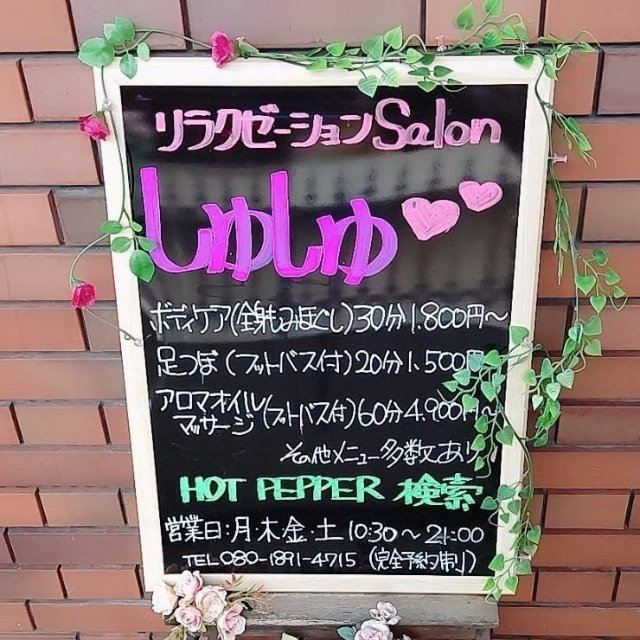 リラクゼーションSalon
しゅしゅ
ボディケア(全身もみほぐし)30分1.800円〜
足つぼ(フットバス付)20分1.500円〜
アロマオイル
マッサージ(フットバス付)60分4.900円〜
その他メニュー多数あり
HOT PEPPER 検索
営業日:月木金・土 10:30〜21:00
TEL 080-1891-4715 (完全予約制)